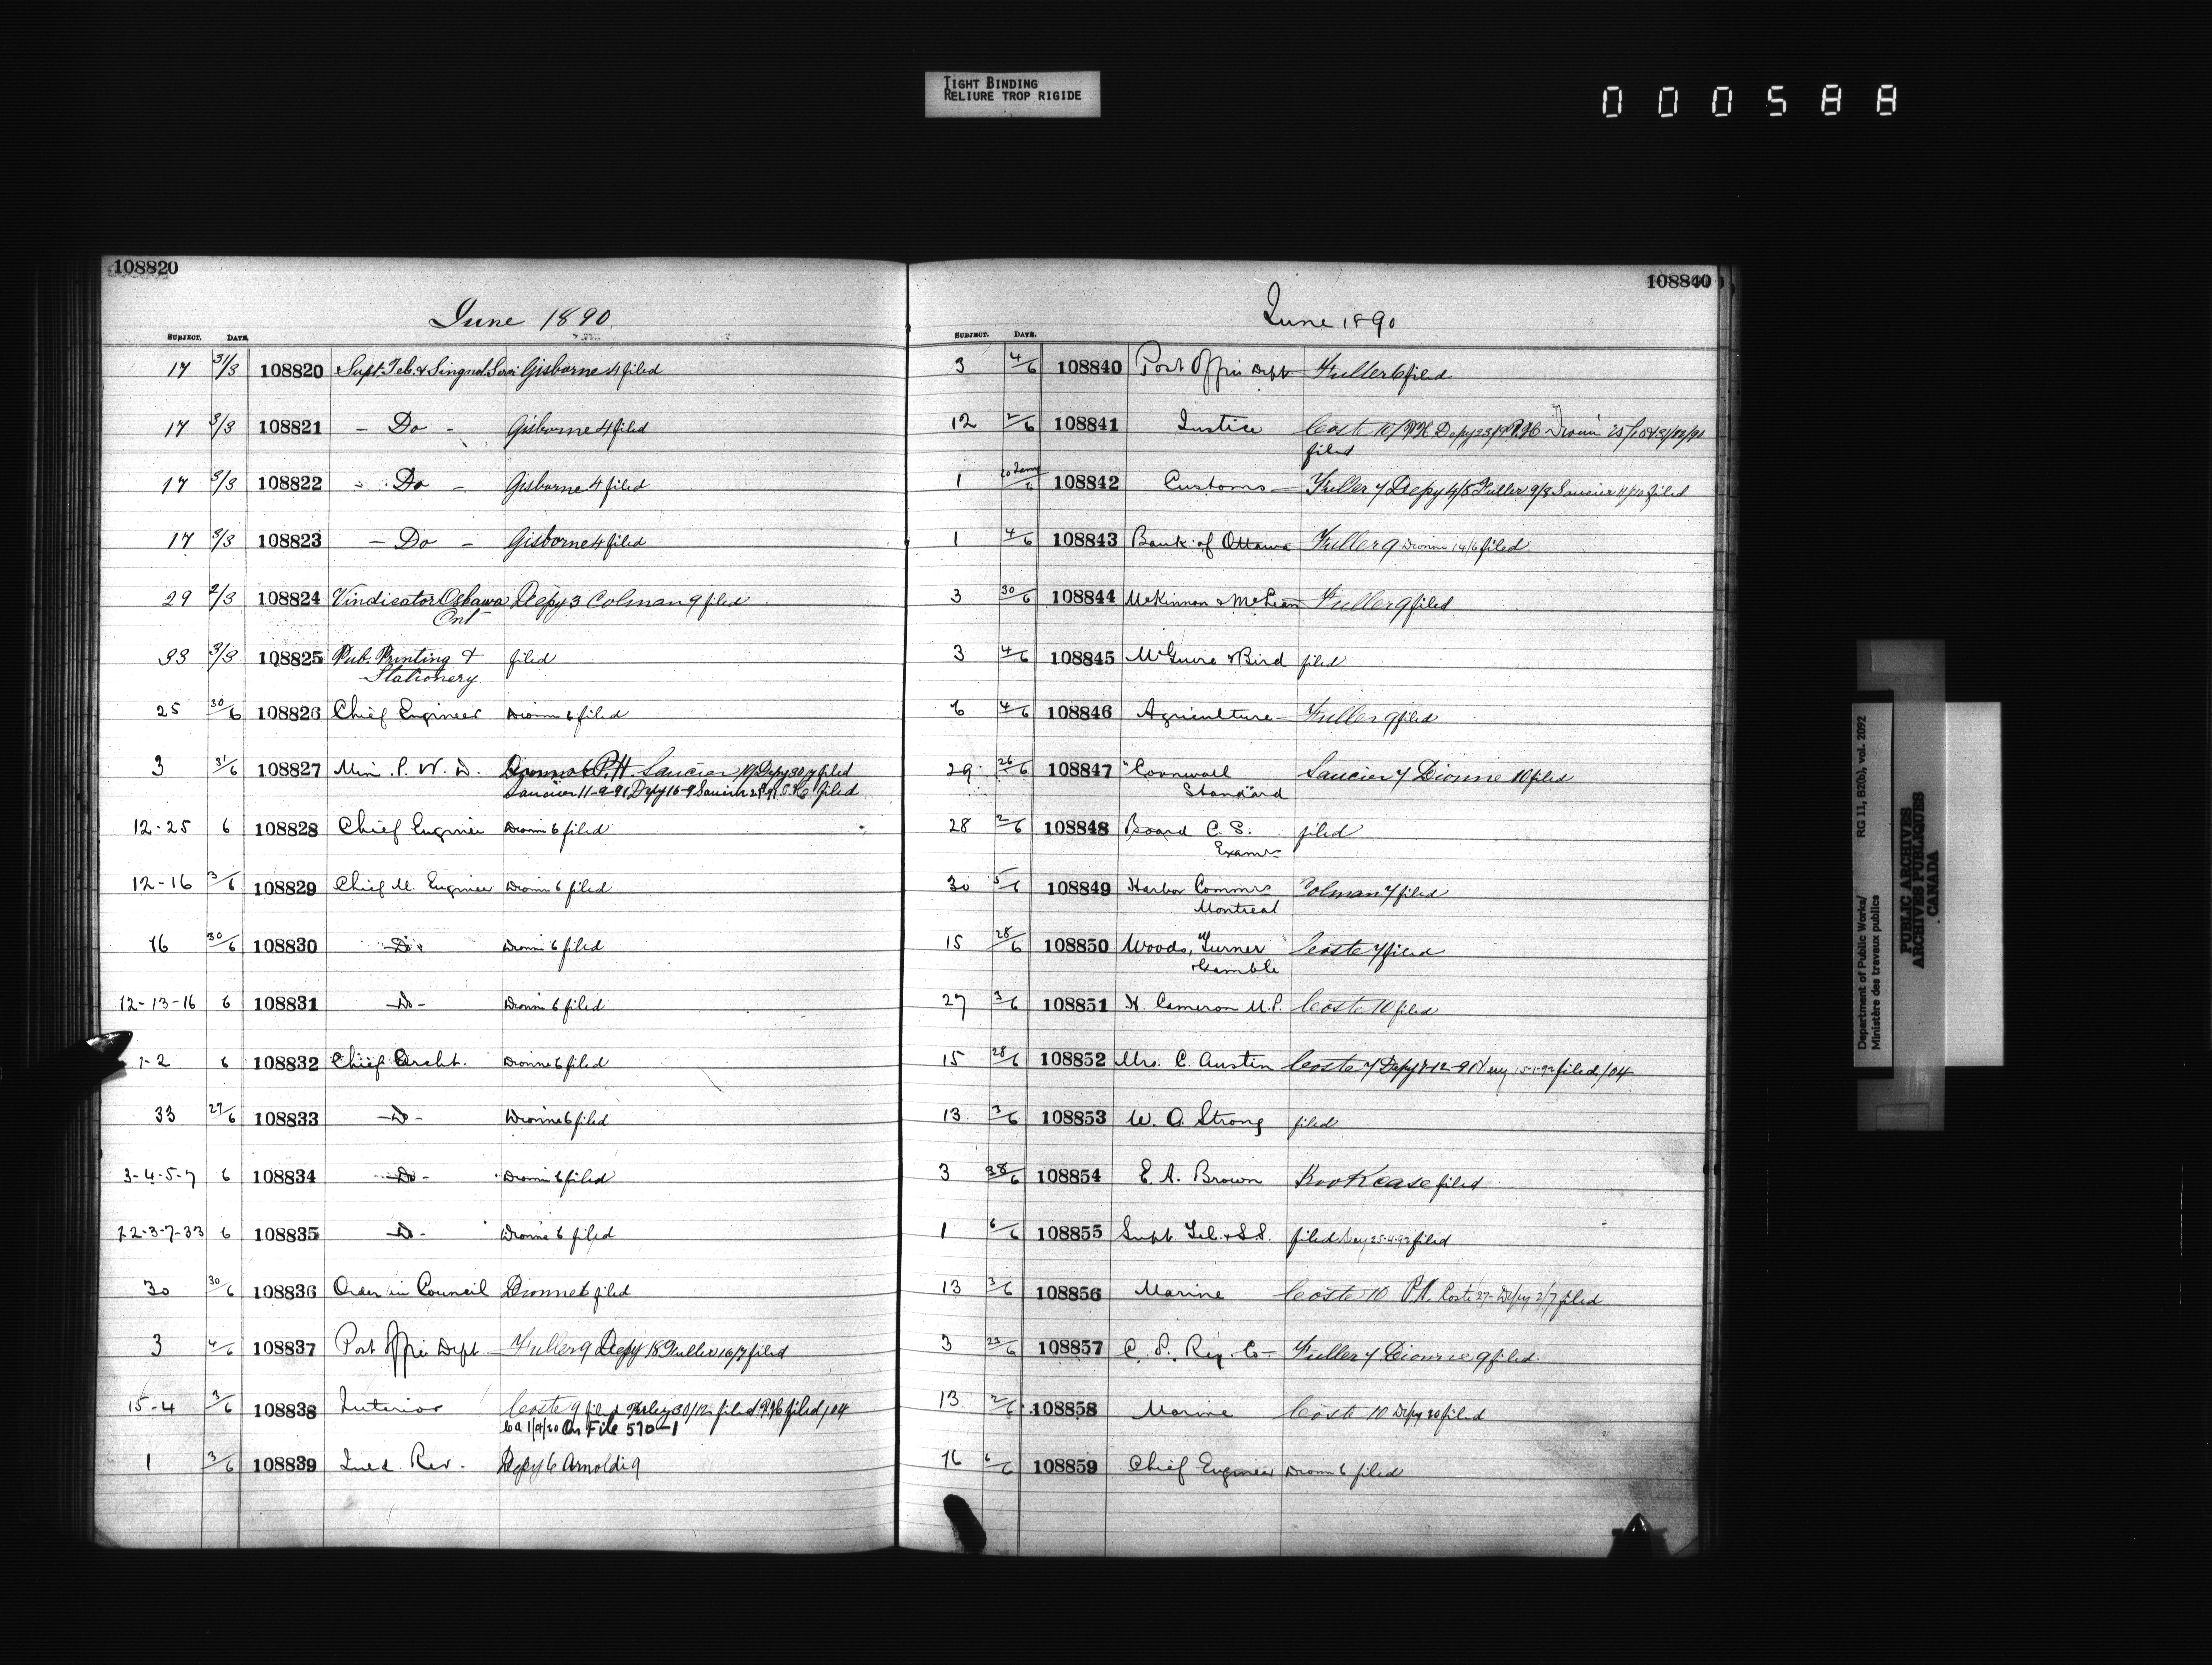 TIGHT BINDING
RELIURE TROP RIGIDE
000588
108820
June 1890
SUBJECT. DATE.
17 31/3 108820 Supt. Tel. & Singnal Servi Gisborne 4 filed
17 3/3 108821 - Do - Gisborne 4 filed
17 3/3 108822 - Do - Gisborne 4 filed
17 3/3 108823 - Do - Gisborne 4 filed
29 2/3 108824 Vindicator Oshawa Depy 3 Colman 9 filed
Ont
33 3/3 108825 Pub. Printing & filed
Stationery
25 30/6 108826 Chief Engineer Dionne 6 filed
3 31/6 108827 Min. P. W. D. Dionne 6 P.H. Saucier Depy 30/7 filed
Saucier 11-9-91 Depy 16-9 Saucier filed
12-25 6 108828 Chief Engineer Dionne 6 filed
12-16 3/6 108829 Chief M. Engineer Dionne 6 filed
16 30/6 108830 - Do - Dionne 6 filed
12-13-16 6 108831 - Do - Dionne 6 filed
1-2 6 108832 Chief Archt. Dionne 6 filed
33 27/6 108833 - Do - Dionne 6 filed
3-4-5-7 6 108834 - Do - Dionne 6 filed
1-2-3-7-33 6 108835 - Do - Dionne 6 filed
30 30/6 108836 Order in Council Dionne 6 filed
3 4/6 108837 Post Office Dept Fuller 9 Depy 18 Fuller 16/7 filed
15-4 3/6 108838 Interior Coste 9 filed 30/12 filed P.H. filed/04
1/9/20 On File 570-1
1 3/6 108839 Inld. Rev. Depy 6 Arnoldi 9
108840
June 1890
SUBJECT. DATE.
3 4/6 108840 Post Office Dept Fuller 6 filed
12 2/6 108841 Justice Coste 10/ P.H. Depy 23/ P.H. Dionne
filed
1 108842 Customs Fuller 7 Depy 4/8 Fuller 9/8 Saucier filed
1 4/6 108843 Bank of Ottawa Fuller 9 Dionne 14/6 filed
3 30/6 108844 McKinnon & McLean Fuller 9 filed
3 4/6 108845 McGuire & Bird filed
6 4/6 108846 Agriculture Fuller 9 filed
29 26/6 108847 "Cornwall Saucier 7 Dionne 10 filed
Standard
28 2/6 108848 Board C. S. filed
Examrs
30 5/6 108849 Harbor Commrs Colman 7 filed
Montreal
15 28/6 108850 Woods, Turner Coste 7 filed
& Gamble
27 3/6 108851 H. Cameron M.P. Coste 10 filed
15 28/6 108852 Mrs. C. Austin Coste 7 Depy 1-12-91 filed/04
13 3/6 108853 W. O. Strong filed
3 28/6 108854 E. A. Brown Bookcase filed
1 6/6 108855 Supt. Tel. & S.S. filed 25-4-92 filed
13 3/6 108856 Marine Coste 10 P.H. Coste 27- Depy 2/7 filed
3 23/6 108857 C. P. Ry. Co- Fuller 7 Dionne 9 filed
13 2/6 108858 Marine Coste 10 Depy 20 filed
16 6/6 108859 Chief Engineer Dionne 6 filed
Department of Public Works/ RG 11, B2(b), vol. 2092
Ministère des travaux publics
PUBLIC ARCHIVES
ARCHIVES PUBLIQUES
CANADA